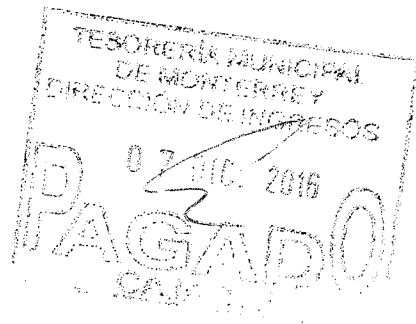 TESORERÍA MUNICIPAL
DE MONTERREY
DIRECCIÓN DE INGRESOS
07 DIC. 2016
PAGADO